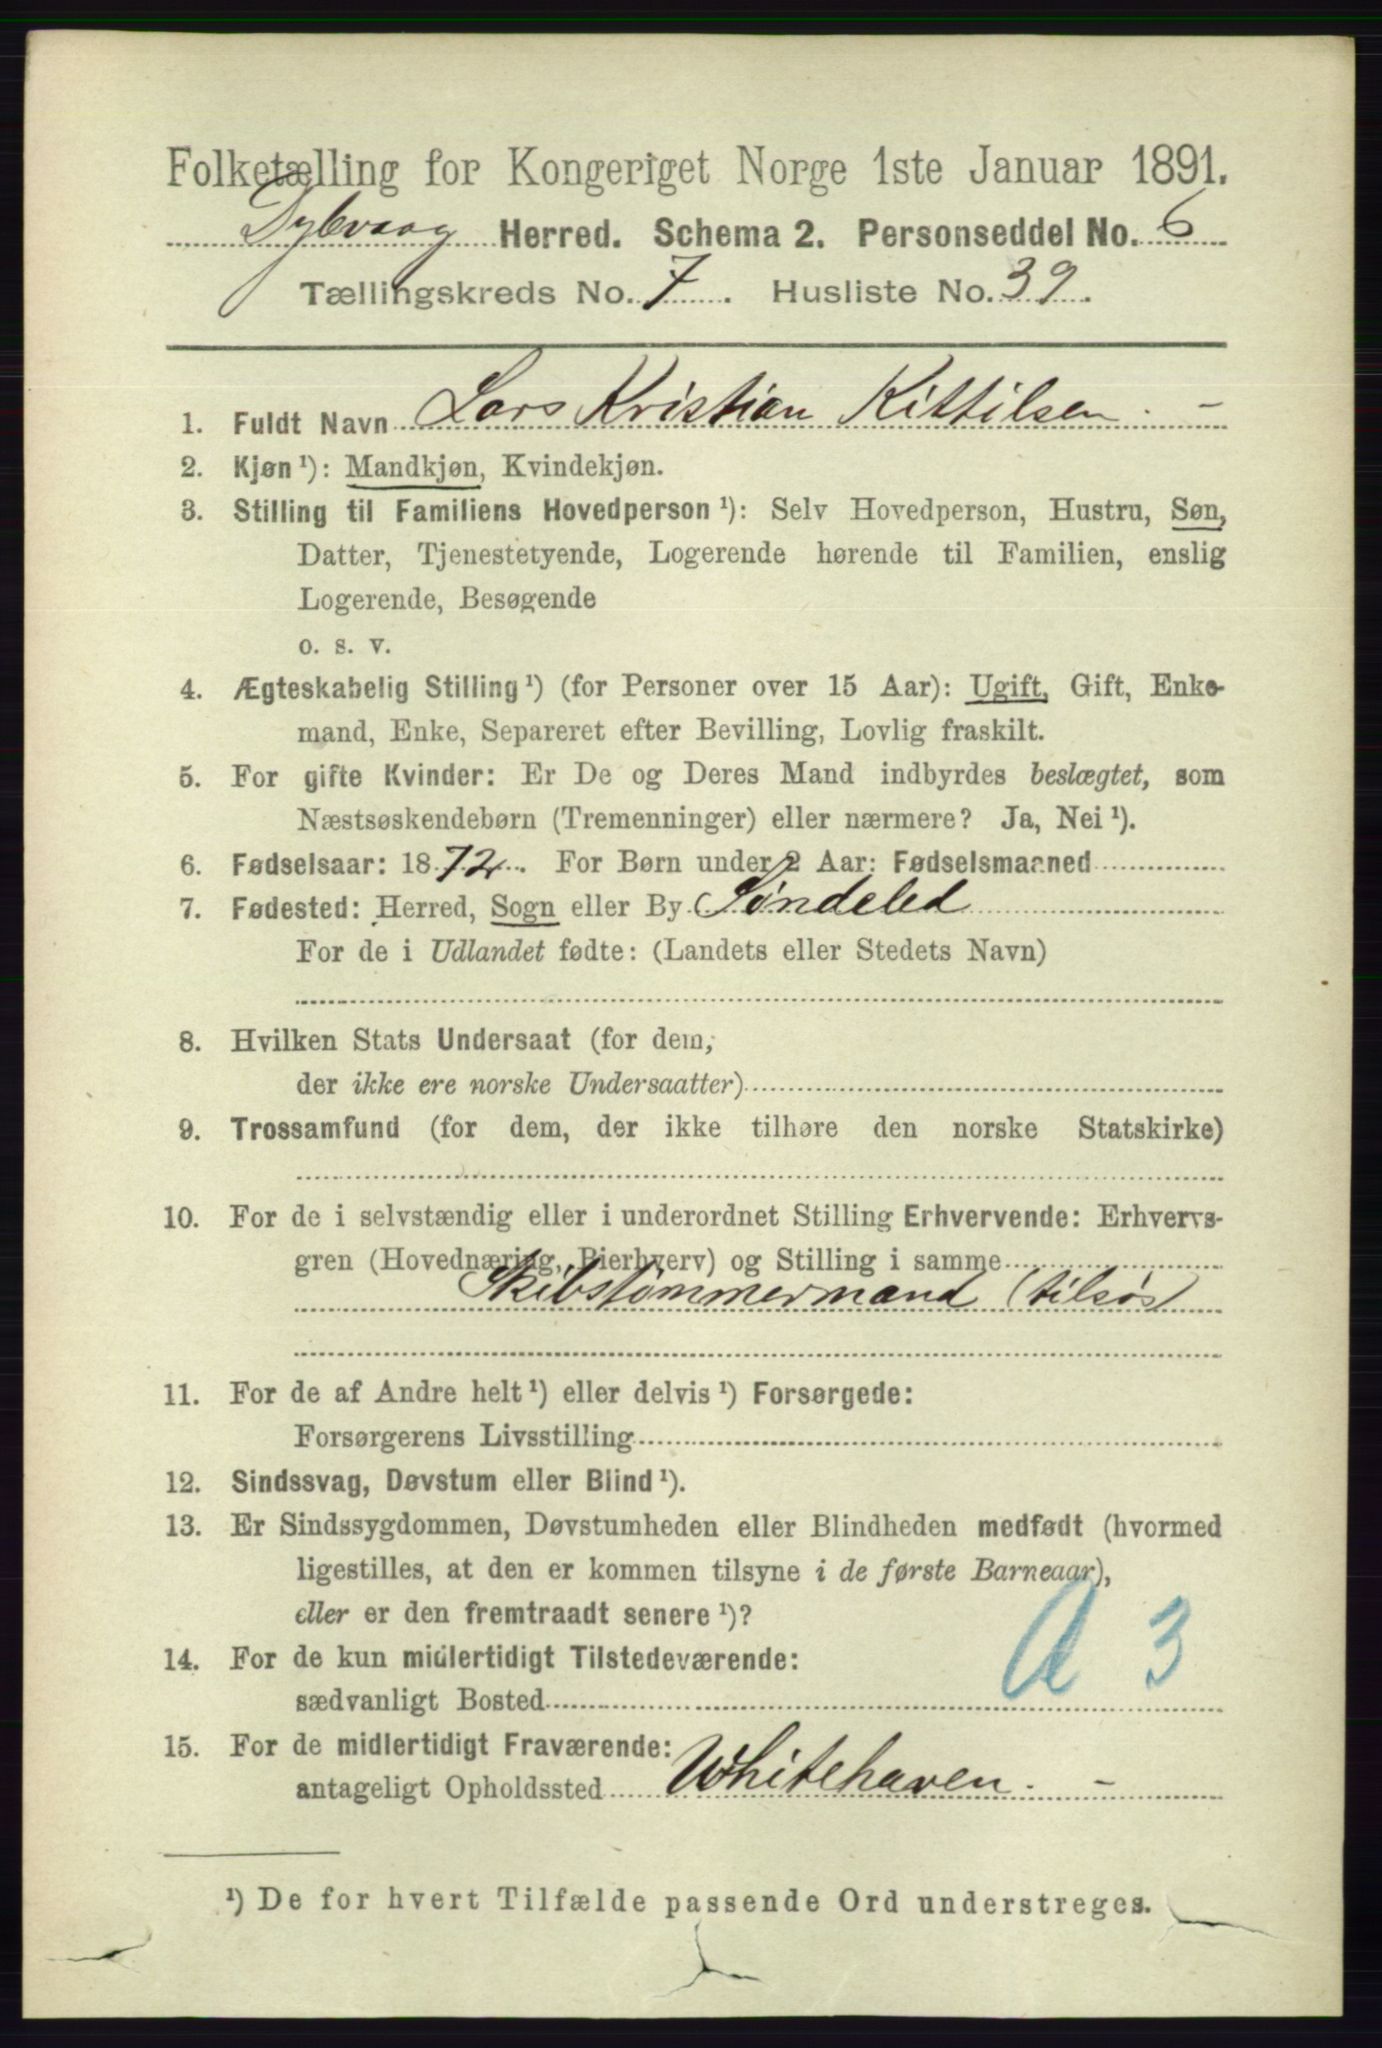 Folketælling for Kongeriget Norge 1ste Januar 1891.
Dybvaag Herred. Schema 2. Personseddel No. 6
Tællingskreds No. 7. Husliste No. 39.
1. Fuldt Navn Lars Kristian Kittilsen. -
2. Kjøn ¹): Mandkjøn, Kvindekjøn.
3. Stilling til Familiens Hovedperson ¹): Selv Hovedperson, Hustru, Søn,
Datter, Tjenestetyende, Logerende hørende til Familien, enslig
Logerende, Besøgende
o. s. v.
4. Ægteskabelig Stilling ¹) (for Personer over 15 Aar): Ugift, Gift, Enke-
mand, Enke, Separeret efter Bevilling, Lovlig fraskilt.
5. For gifte Kvinder: Er De og Deres Mand indbyrdes beslægtet, som
Næstsøskendebørn (Tremenninger) eller nærmere? Ja, Nei ¹).
6. Fødselsaar: 1872. For Børn under 2 Aar: Fødselsmaaned
7. Fødested: Herred, Sogn eller By Søndeled
For de i Udlandet fødte: (Landets eller Stedets Navn)
8. Hvilken Stats Undersaat (for dem,
der ikke ere norske Undersaatter)
9. Trossamfund (for dem, der ikke tilhøre den norske Statskirke)
10. For de i selvstændig eller i underordnet Stilling Erhvervende: Erhvervs-
gren (Hovednæring, Bierhverv) og Stilling i samme
Skibstømmermand (tilsøs)
11. For de af Andre helt ¹) eller delvis ¹) Forsørgede:
Forsørgerens Livsstilling
12. Sindssvag, Døvstum eller Blind ¹).
13. Er Sindssygdommen, Døvstumheden eller Blindheden medfødt (hvormed
ligestilles, at den er kommen tilsyne i de første Barneaar),
eller er den fremtraadt senere ¹)?
A 3
14. For de kun midlertidigt Tilstedeværende:
sædvanligt Bosted
15. For de midlertidigt Fraværende:
antageligt Opholdssted Whitehaven. -
¹) De for hvert Tilfælde passende Ord understreges.